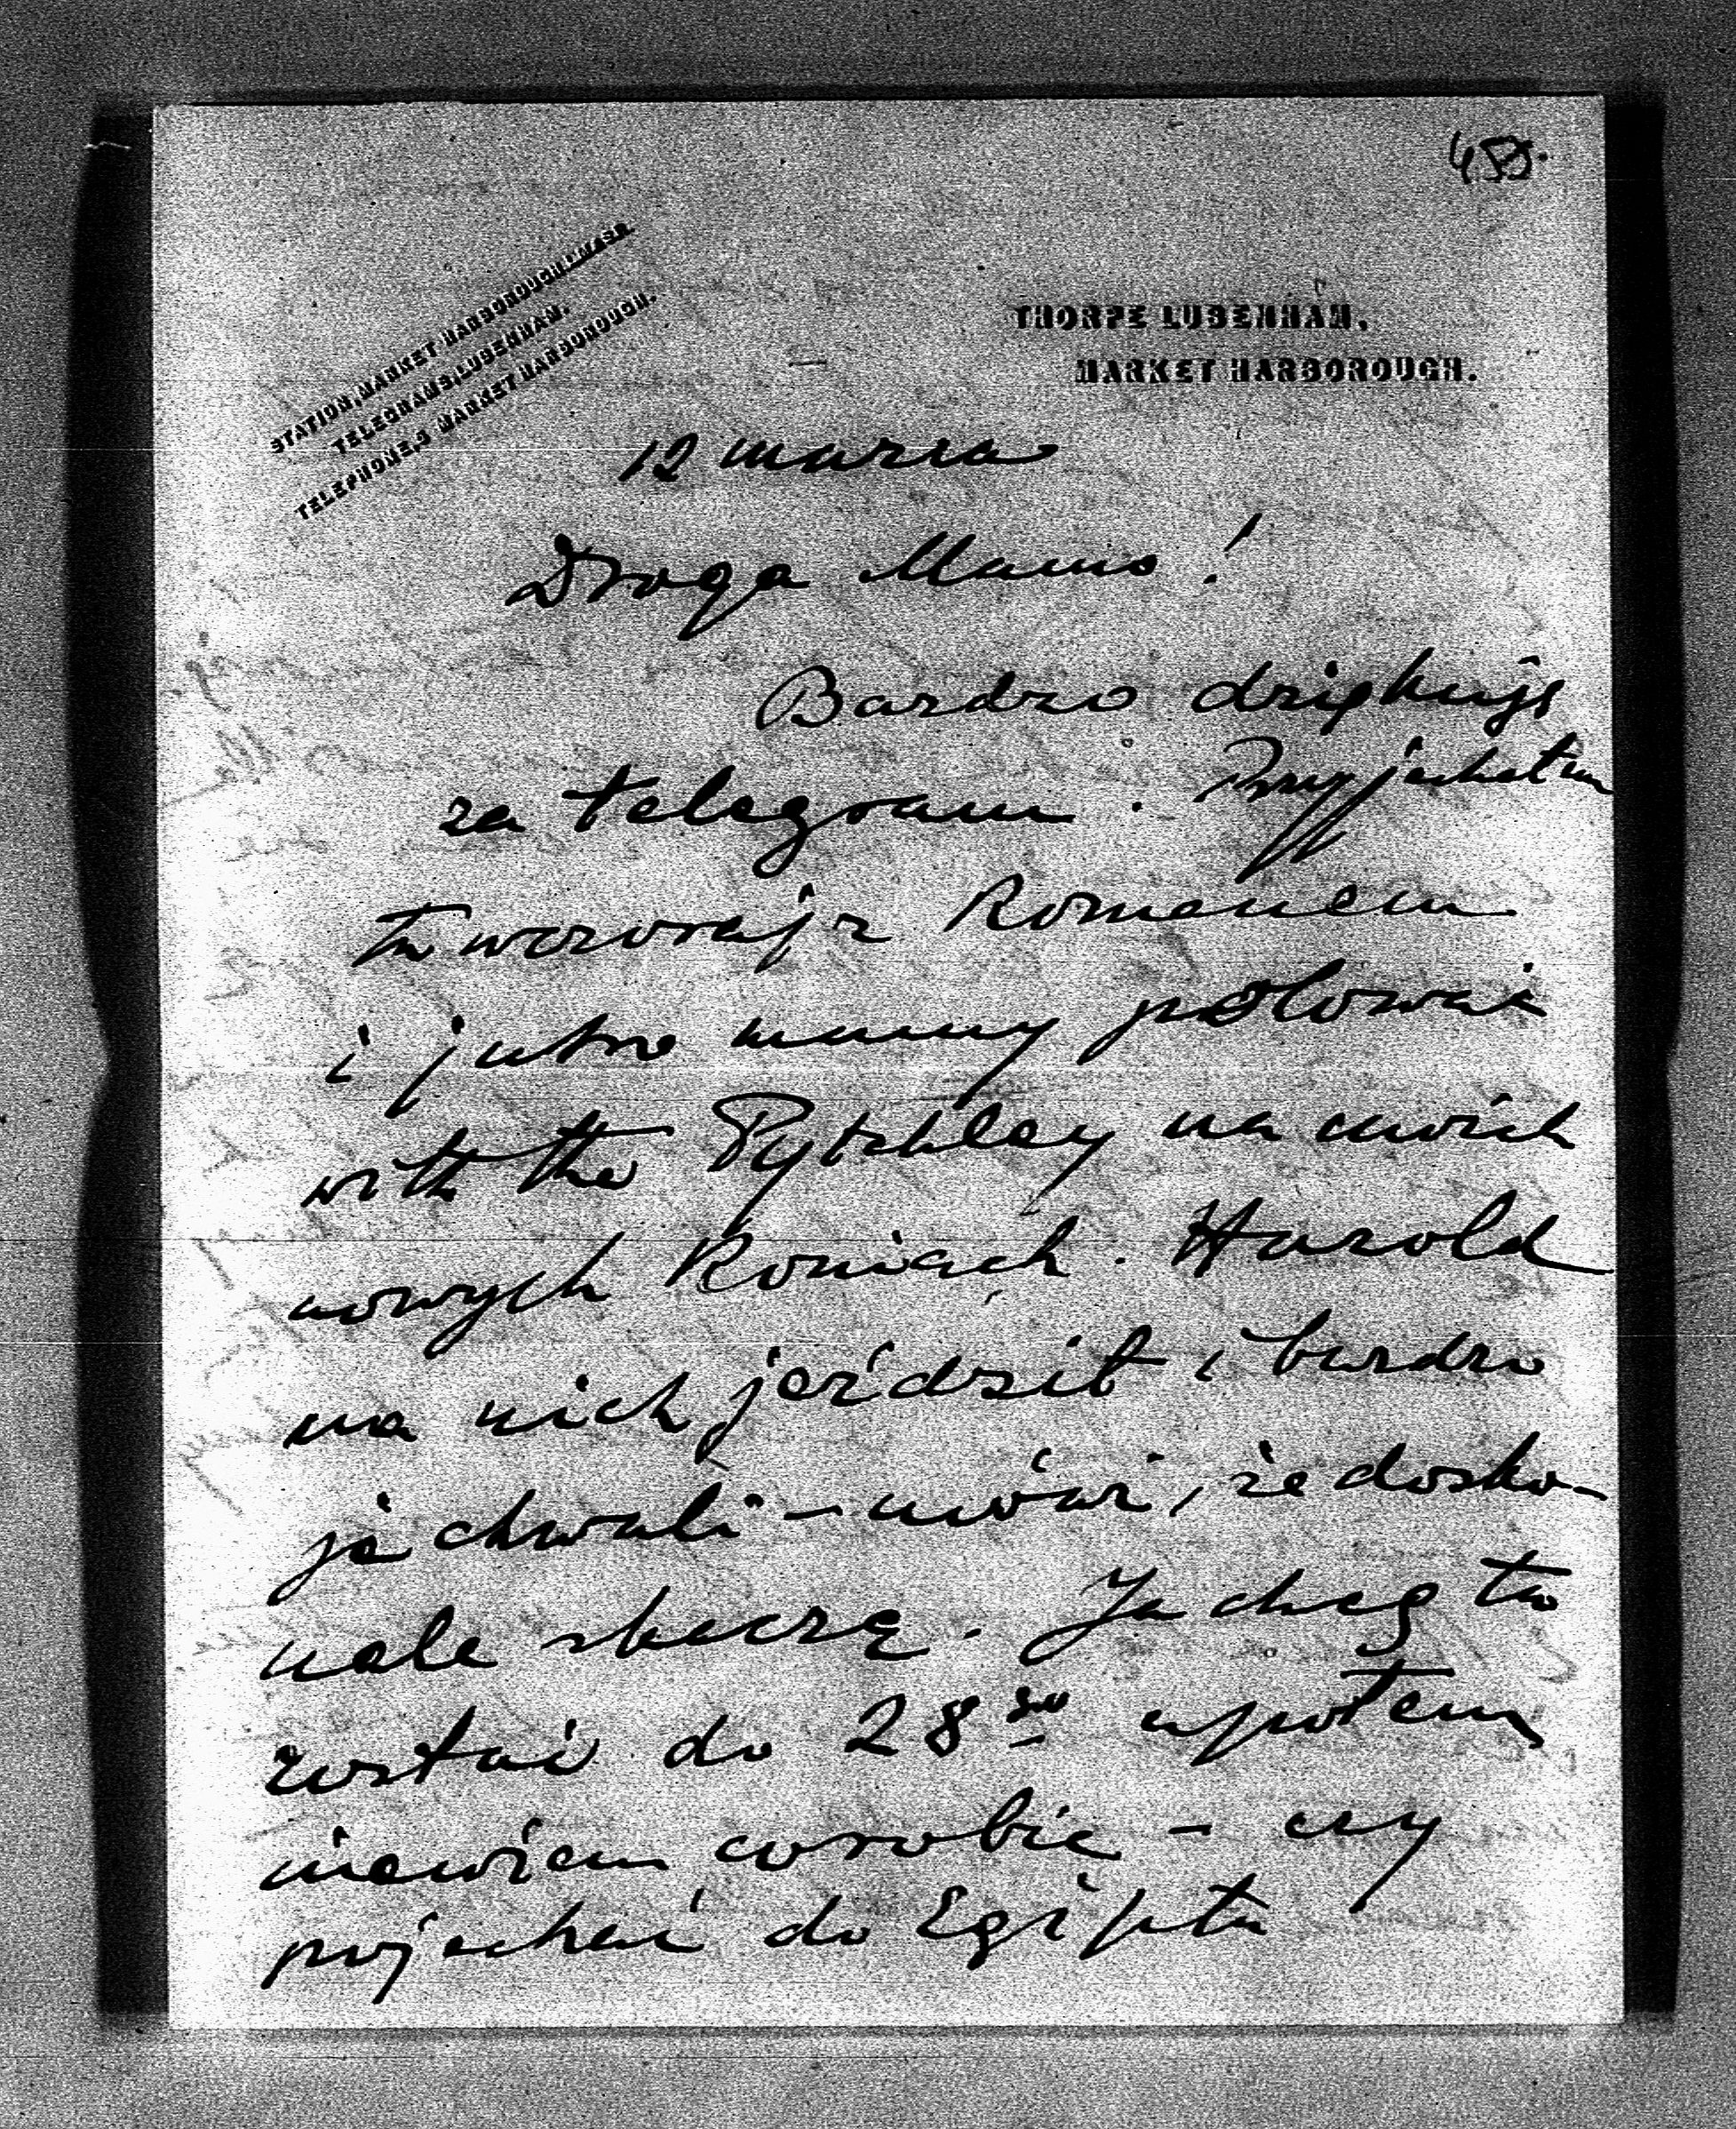 455.
STATION, MARKET HARBOROUGH, L.&N.W.R.
TELEGRAMS, LUBENHAM.
TELEPHONE, 3 MARKET HARBOROUGH.
THORPE LUBENHAM,
MARKET HARBOROUGH.
12 marca
Droga Mamo!
Bardzo dziękuję
za telegram. Przyjechałem
tu wczoraj z Romanem
i jutro mamy polować
with the Pytchley na moich
nowych koniach. Harold
na nich jeździł i bardzo
je chwali – mówi, że dosko-
nale skaczą. Ja chcę tu
zostać do 28go a potem
niewiem co robić – czy
pojechać do Egiptu